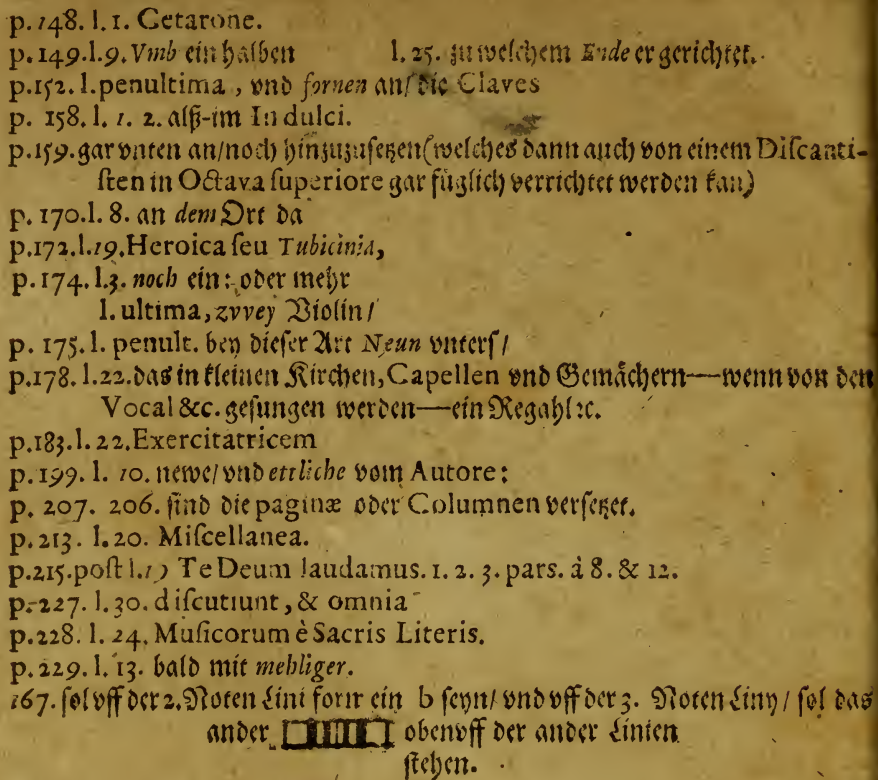 p. 148. l. 1. Cetarone.
p. 149. l. 9. Vmb ein halben l. 25. zu welchem Ende er gerichtet.
p. 152. l. penultima, vnd fornen an/ die Claves
p. 158. l. 1. 2. alß-im In dulci.
p. 159. gar vnten an/ noch hinzuzusetzen (welches dann auch von einem Discanti-
sten in Octava superiore gar füglich verrichtet werden kan)
p. 170. l. 8. an dem Ort da
p. 172. l. 19. Heroica seu Tubicinia,
p. 174. l. 3. noch ein: oder mehr
l. ultima, zvvey Violin/
p. 175. l. penult. bey dieser Art Neun vnters/
p. 178. l. 22. das in kleinen Kirchen, Capellen vnd Gemächern—wenn von den
Vocal &c. gesungen werden—ein Regahl ꝛc.
p. 183. l. 22. Exercitatricem
p. 199. l. 10. newe/ vnd ettliche vom Autore:
p. 207. 206. sind die paginæ oder Columnen versetzet.
p. 213. l. 20. Miscellanea.
p. 215. post l. 19 Te Deum laudamus. 1. 2. 3. pars. à 8. & 12.
p. 227. l. 30. discutiunt, & omnia
p. 228. l. 24. Musicorum è Sacris Literis.
p. 229. l. 13. bald mit mehliger.
167. sol vff der 2. Noten Lini forn ein b seyn/ vnd vff der 3. Noten Liny/ sol das
ander oben vff der ander Linien
stehen.